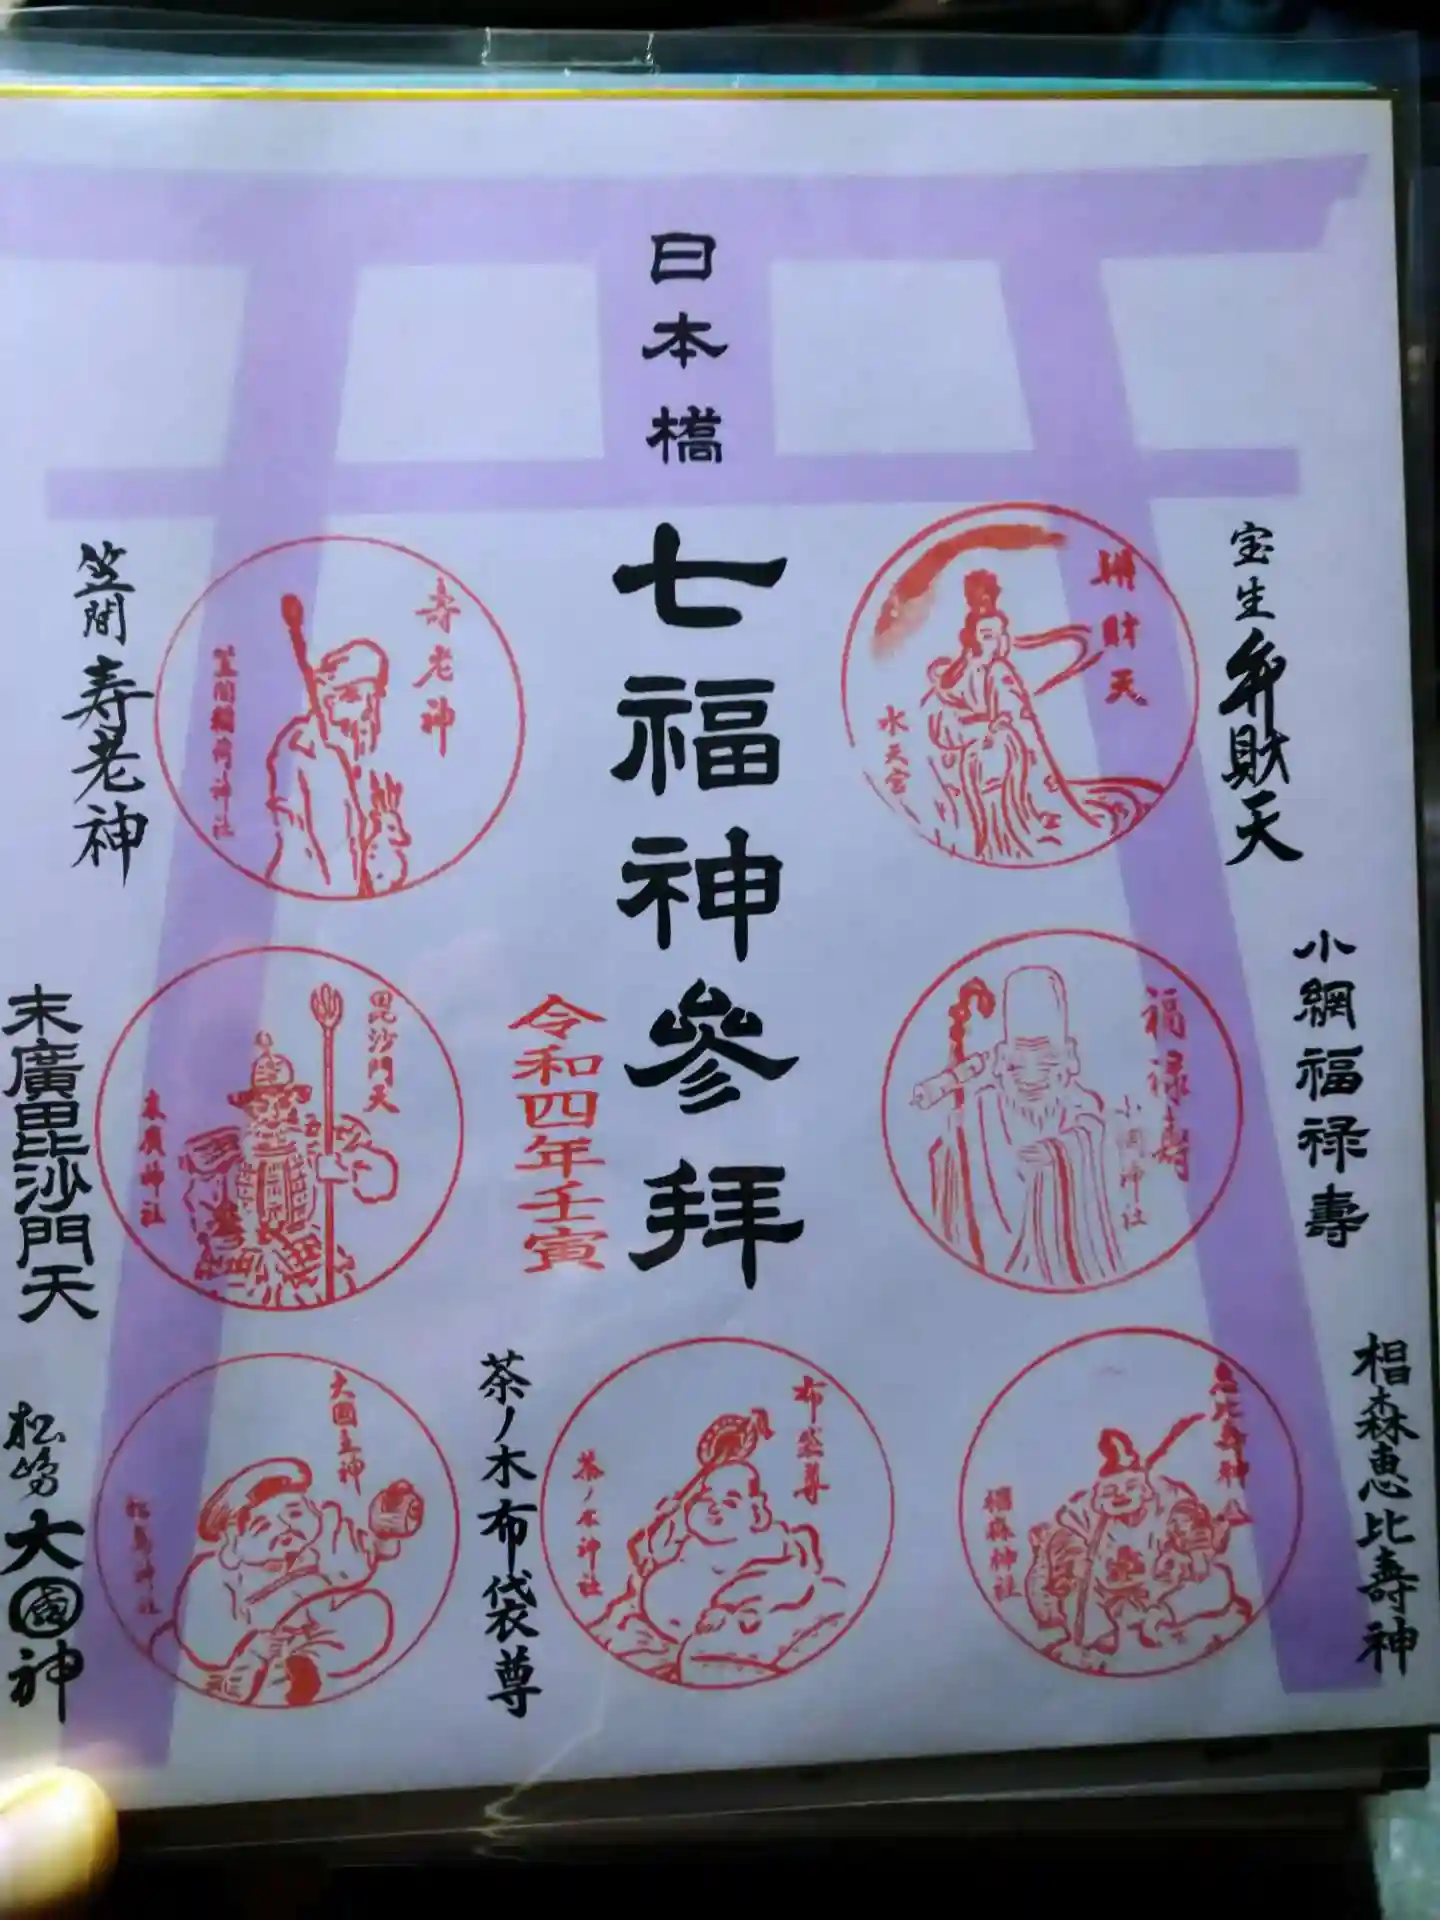 日本橋
七福神参拜
令和四年壬寅
宝生弁財天
辨財天
水天宮
小網福禄壽
福禄壽
小網神社
椙森恵比壽神
恵比寿神
椙森神社
笠間寿老神
寿老神
笠間稲荷神社
末廣毘沙門天
毘沙門天
末廣神社
茶ノ木布袋尊
布袋尊
茶ノ木神社
松島大國神
大國主神
松島神社